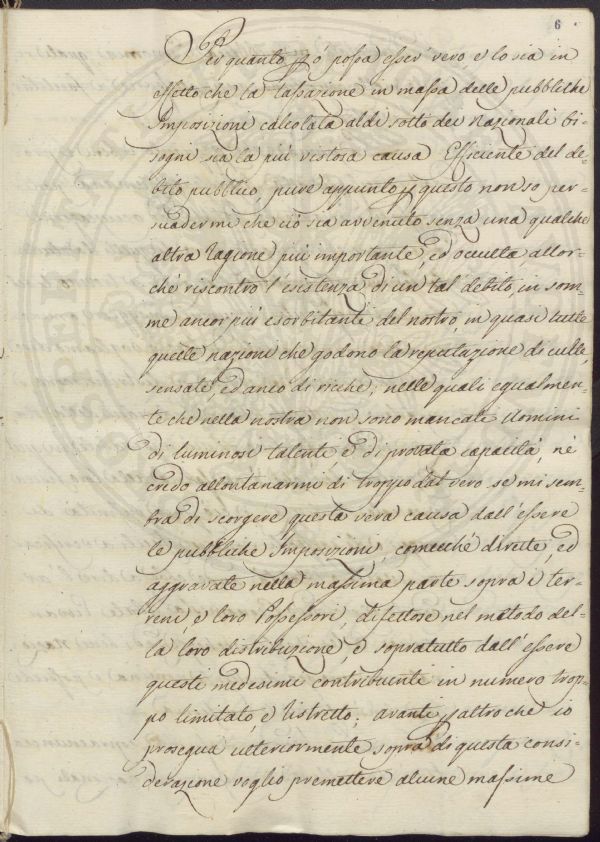 6
Per quanto però possa esser vero e lo sia in
effetto che la tassazione in massa delle pubbliche
Imposizioni calcolata al di sotto dei Nazionali bi-
sogni sia la più vistosa causa Efficiente del de-
bito pubblico, pure appunto per questo non so per-
suadermi che ciò sia avvenuto senza una qualche
altra ragione più importante, ed occulta, allor-
ché riscontro l'esistenza di un tal debito, in som-
me ancor più esorbitanti del nostro, in quasi tutte
quelle nazioni che godono la reputazione di culte,
sensate, ed anco di ricche; nelle quali egualmen-
te che nella nostra non sono mancati Uomini
di luminosi talenti e di provata capacità, né
credo allontanarmi di troppo dal vero se mi sem-
bra di scorgere questa vera causa dall'essere
le pubbliche Imposizioni, comecché dirette, ed
aggravate nella massima parte sopra i ter-
reni e loro Possessori, difettose nel metodo del-
la loro distribuzione, e sopratutto dall'essere
questi medesimi contribuenti in numero trop-
po limitato, e ristretto; avanti per altro che io
prosegua ulteriormente sopra di questa consi-
derazione voglio premettere alcune massime